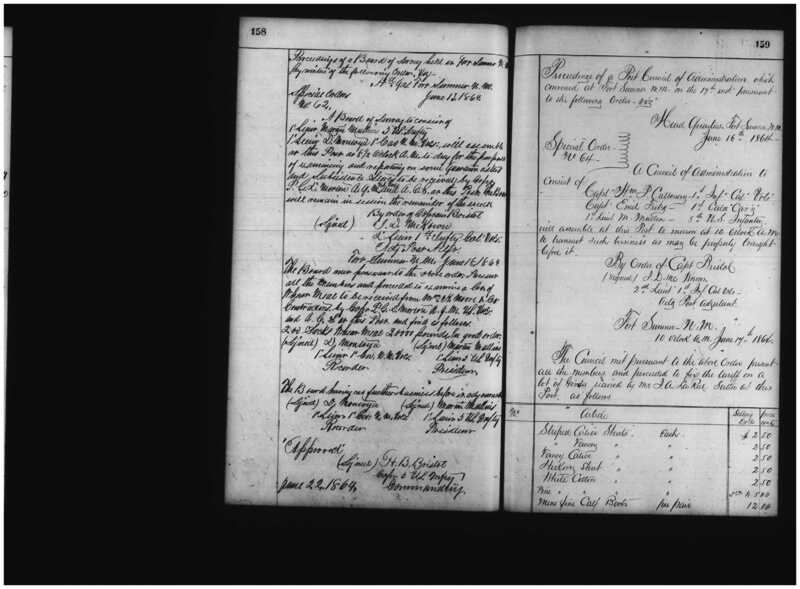 158
Proceedings of a Board of Survey held at Fort Sumner N. M.
by virtue of the following Order. Viz
Hd Qrs Fort Sumner N. M.
Special Orders
June 12, 1864
No 62.
A Board of Survey to consist of
1st Lieut Martin Mullins 5 US Infty
1st Lieut D. Montoya 1st Cav N. M. Vols. will assemble
at this Post at o'clock A. M. to day for the purpose
of examining and reporting on some
and Subsistence Stores to be received by Capt
P. C. L. Moran A. Q. M. and A. C. S. at this Post. The Board
will remain in session the remainder of the
By order of Captain Bristol
(Signed)
2d Lieut 1st Infty Cal. Vols.
Actg Post Adjt.
Fort Sumner N. M. June 16, 1864
The Board met pursuant to the above order. Present
all the Members and proceeded to examine a lot of
Wheat Meal to be received from Mr Moore & Co
Contractors by Capt P. C. L. Moran A. Q. M. US. Vols
and A. C. S. at this Post and find as follows
200 Sacks Wheat Meal 20000 pounds in good order.
(Signed) D. Montoya (Signed) Martin Mullins
1st Lieut 1st Cav. N. M. Vols 1st Lieut 5 US. Infty
Recorder President
The Board having no further business before it adjourned
(Signed) D. Montoya (Signed) Martin Mullins
1st Lieut 1st Cav. N. M. Vols 1st Lieut 5 US. Infty
Recorder President
"Approved"
(Signed) H. B. Bristol
Capt 5 US. Infty
June 22, 1864. Commanding
159
Proceedings of a Post Council of Administration which
convened at Fort Sumner N. M. on the 17th inst pursuant
to the following Order - viz
Head Quarters Fort Sumner N. M.
June 16th 1864
Special Order
No 64.
A Council of Administration to
consist of
Capt Wm P. Calloway 1st Inf Cal Vols
Capt Emil Fritz 1st Cal Cav'y
1st Lieut M. Mullins 5th U. S. Infantry
will assemble at this Post to morrow at 10 O'clock A. M.
to transact such business as may be properly brought
before it.
By Order of Capt Bristol
(Signed)
2nd Lieut 1st Inf Cal Vols
Actg Post Adjutant
Fort Sumner N. M.
10 o'clock A. M. June 17th 1864
The Council met pursuant to the above Order present
all the members and proceeded to fix the tariff on a
lot of Goods received by Mr J. A. La Rue Sutler at this
Post as follows
No. Article Selling Price
Striped Calico Shirts each $ 2.50
" Fancy " " 2.50
Fancy Calico " " 2.50
Hickory Shirt " 2.50
White Cotton " 2.50
Fine " " " 5.00
Mens fine Calf Boots per pair 12.00